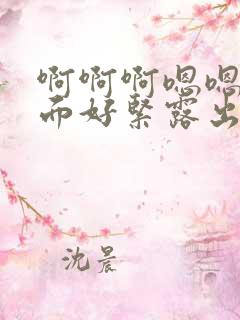 啊啊啊嗯嗯
而好緊露出
沈晨